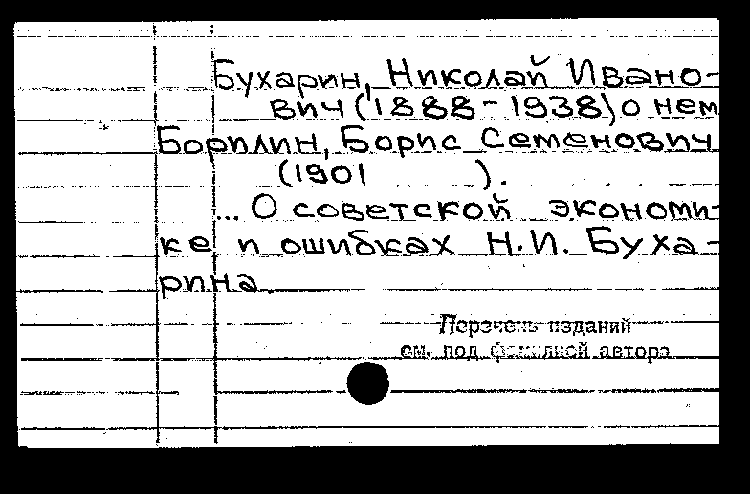 Бухарин, Николай Ивано-
вич (1888-1938) о нем
Борилин, Борис Семенович
(1901 ).
... О советской экономи-
ке и ошибках Н.И. Буха-
рина.
Перечень изданий
см. под фамилией автора